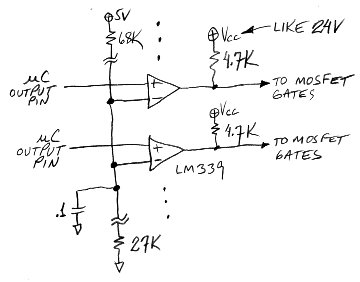 5V
68K
Vcc
LIKE 24V
4.7K
+
-
µC
OUTPUT
PIN
TO MOSFET
GATES
Vcc
4.7K
µC
OUTPUT
PIN
+
-
TO MOSFET
GATES
LM339
.1
27K